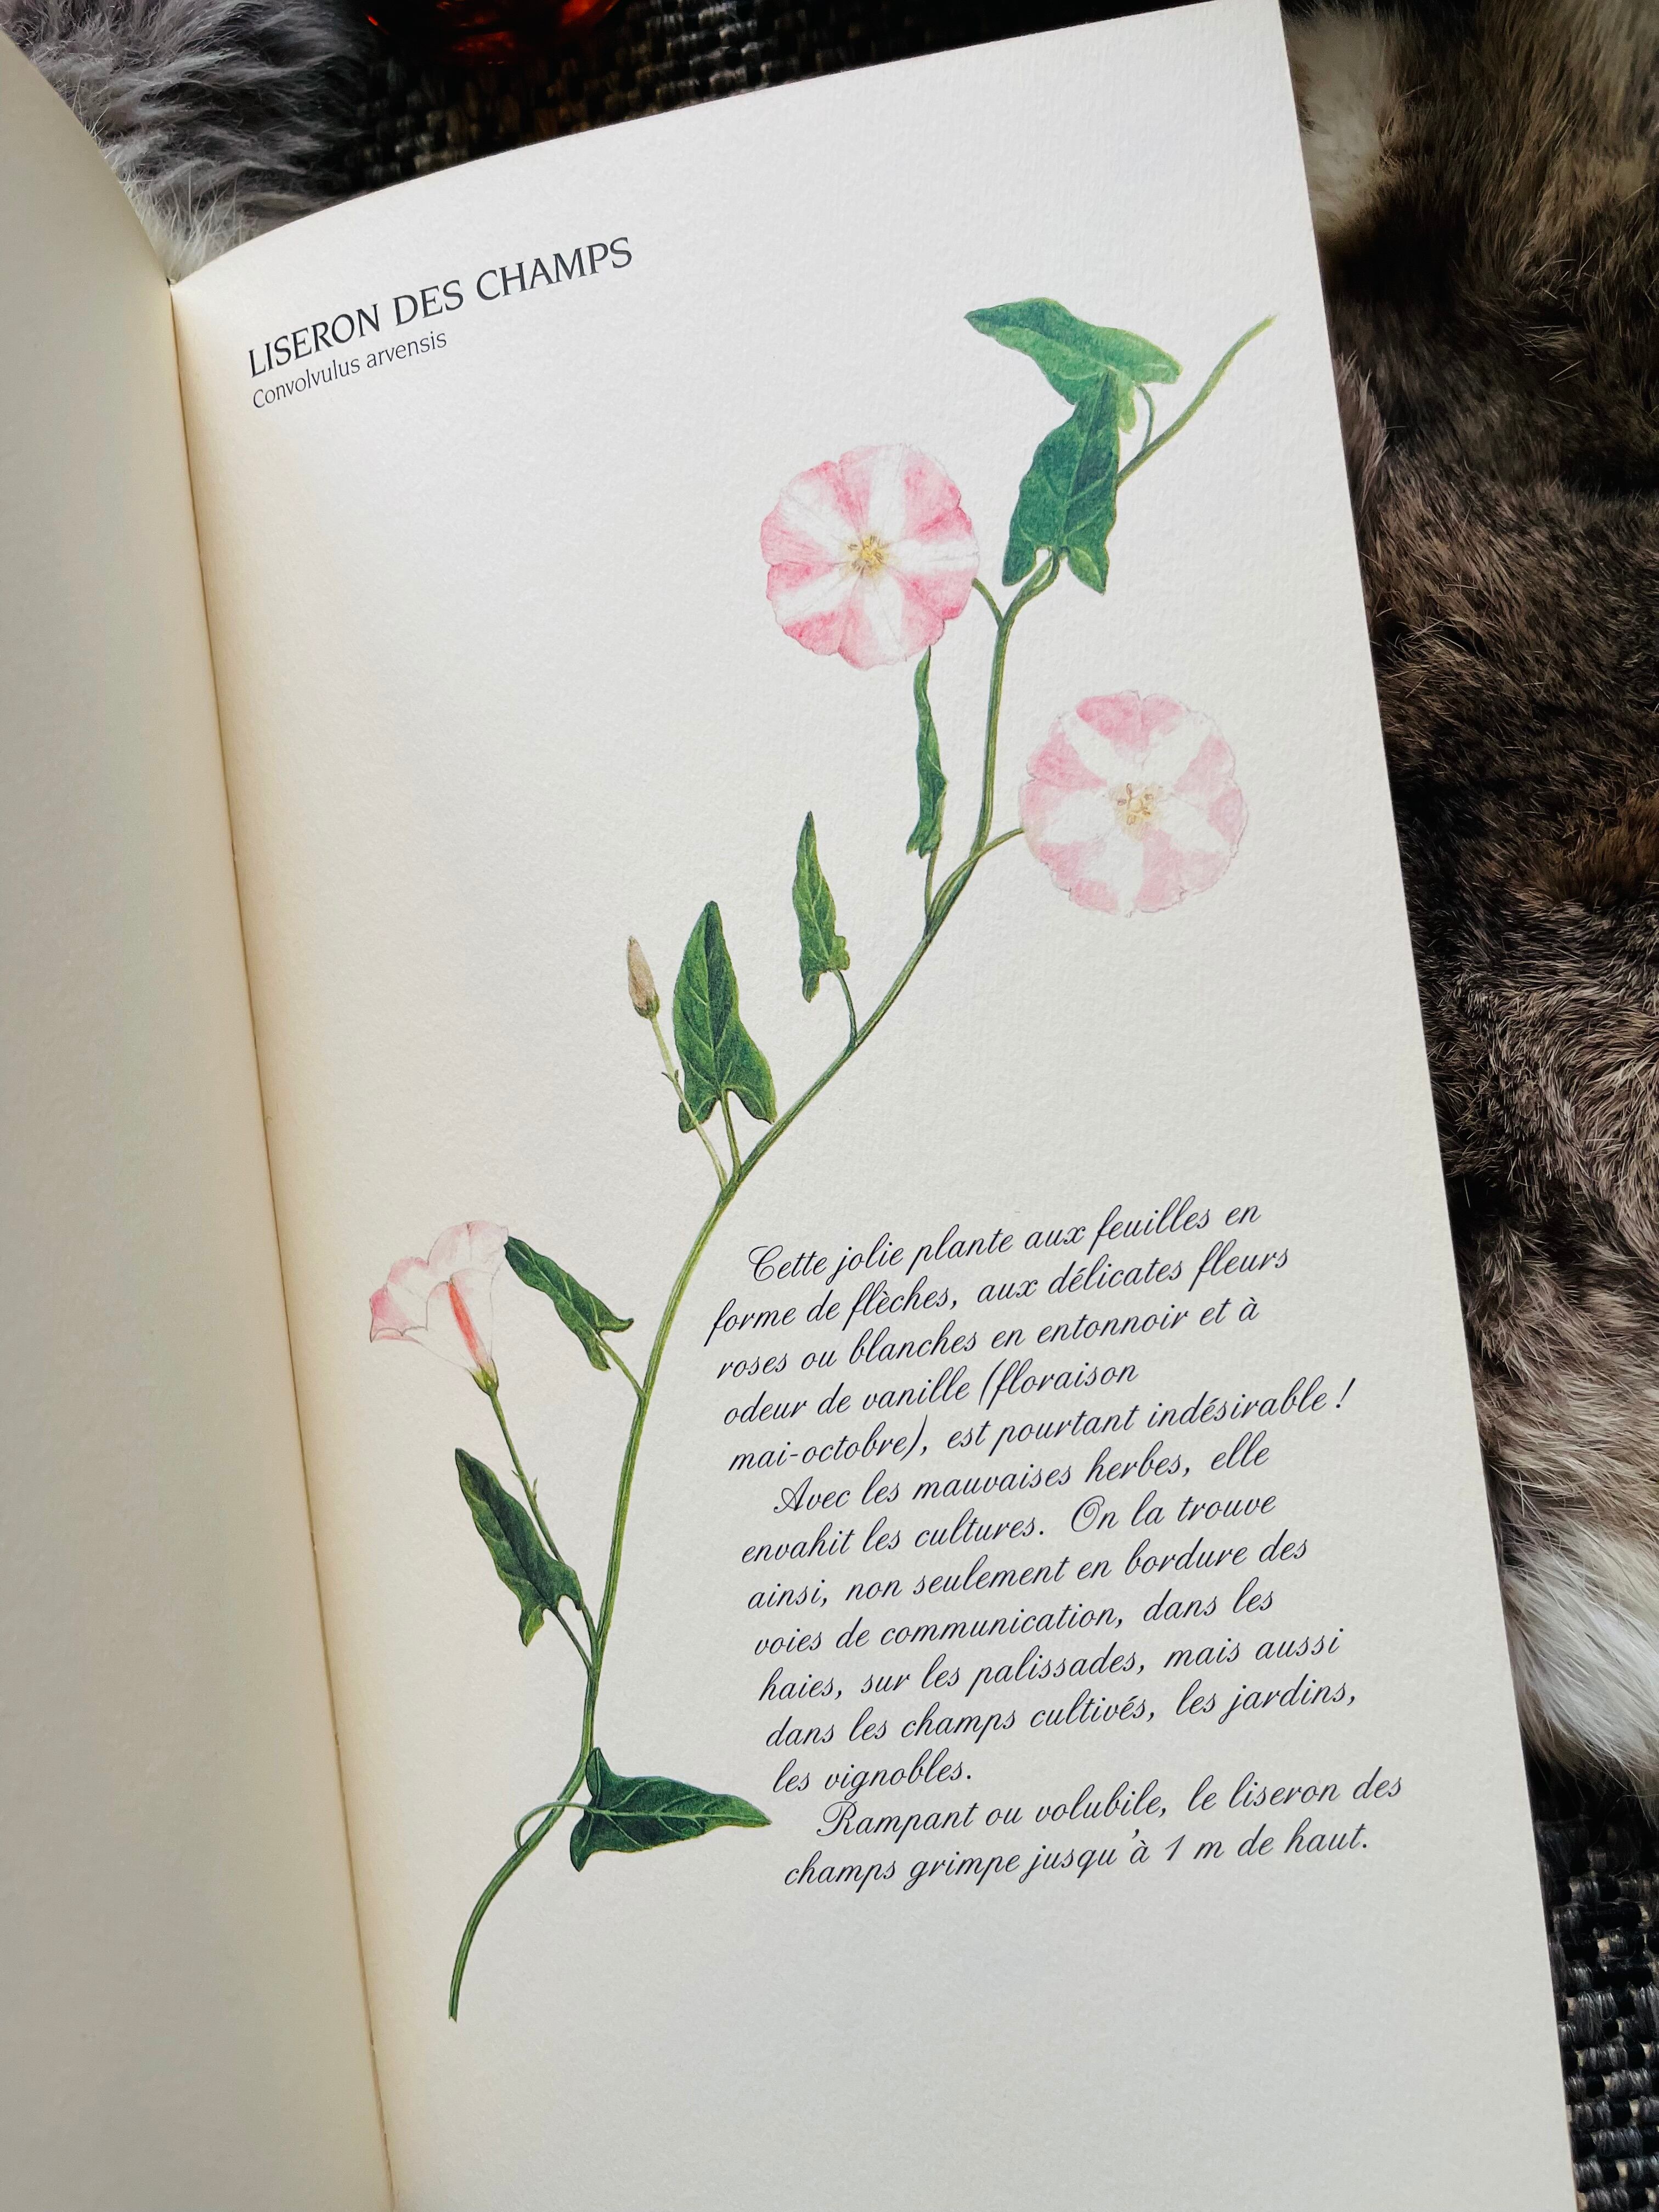 LISERON DES CHAMPS
Convolvulus arvensis
Cette jolie plante aux feuilles en
forme de flèches, aux délicates fleurs
roses ou blanches en entonnoir et à
odeur de vanille (floraison
mai-octobre), est pourtant indésirable !
Avec les mauvaises herbes, elle
envahit les cultures. On la trouve
ainsi, non seulement en bordure des
voies de communication, dans les
haies, sur les palissades, mais aussi
dans les champs cultivés, les jardins,
les vignobles.
Rampant ou volubile, le liseron des
champs grimpe jusqu'à 1 m de haut.